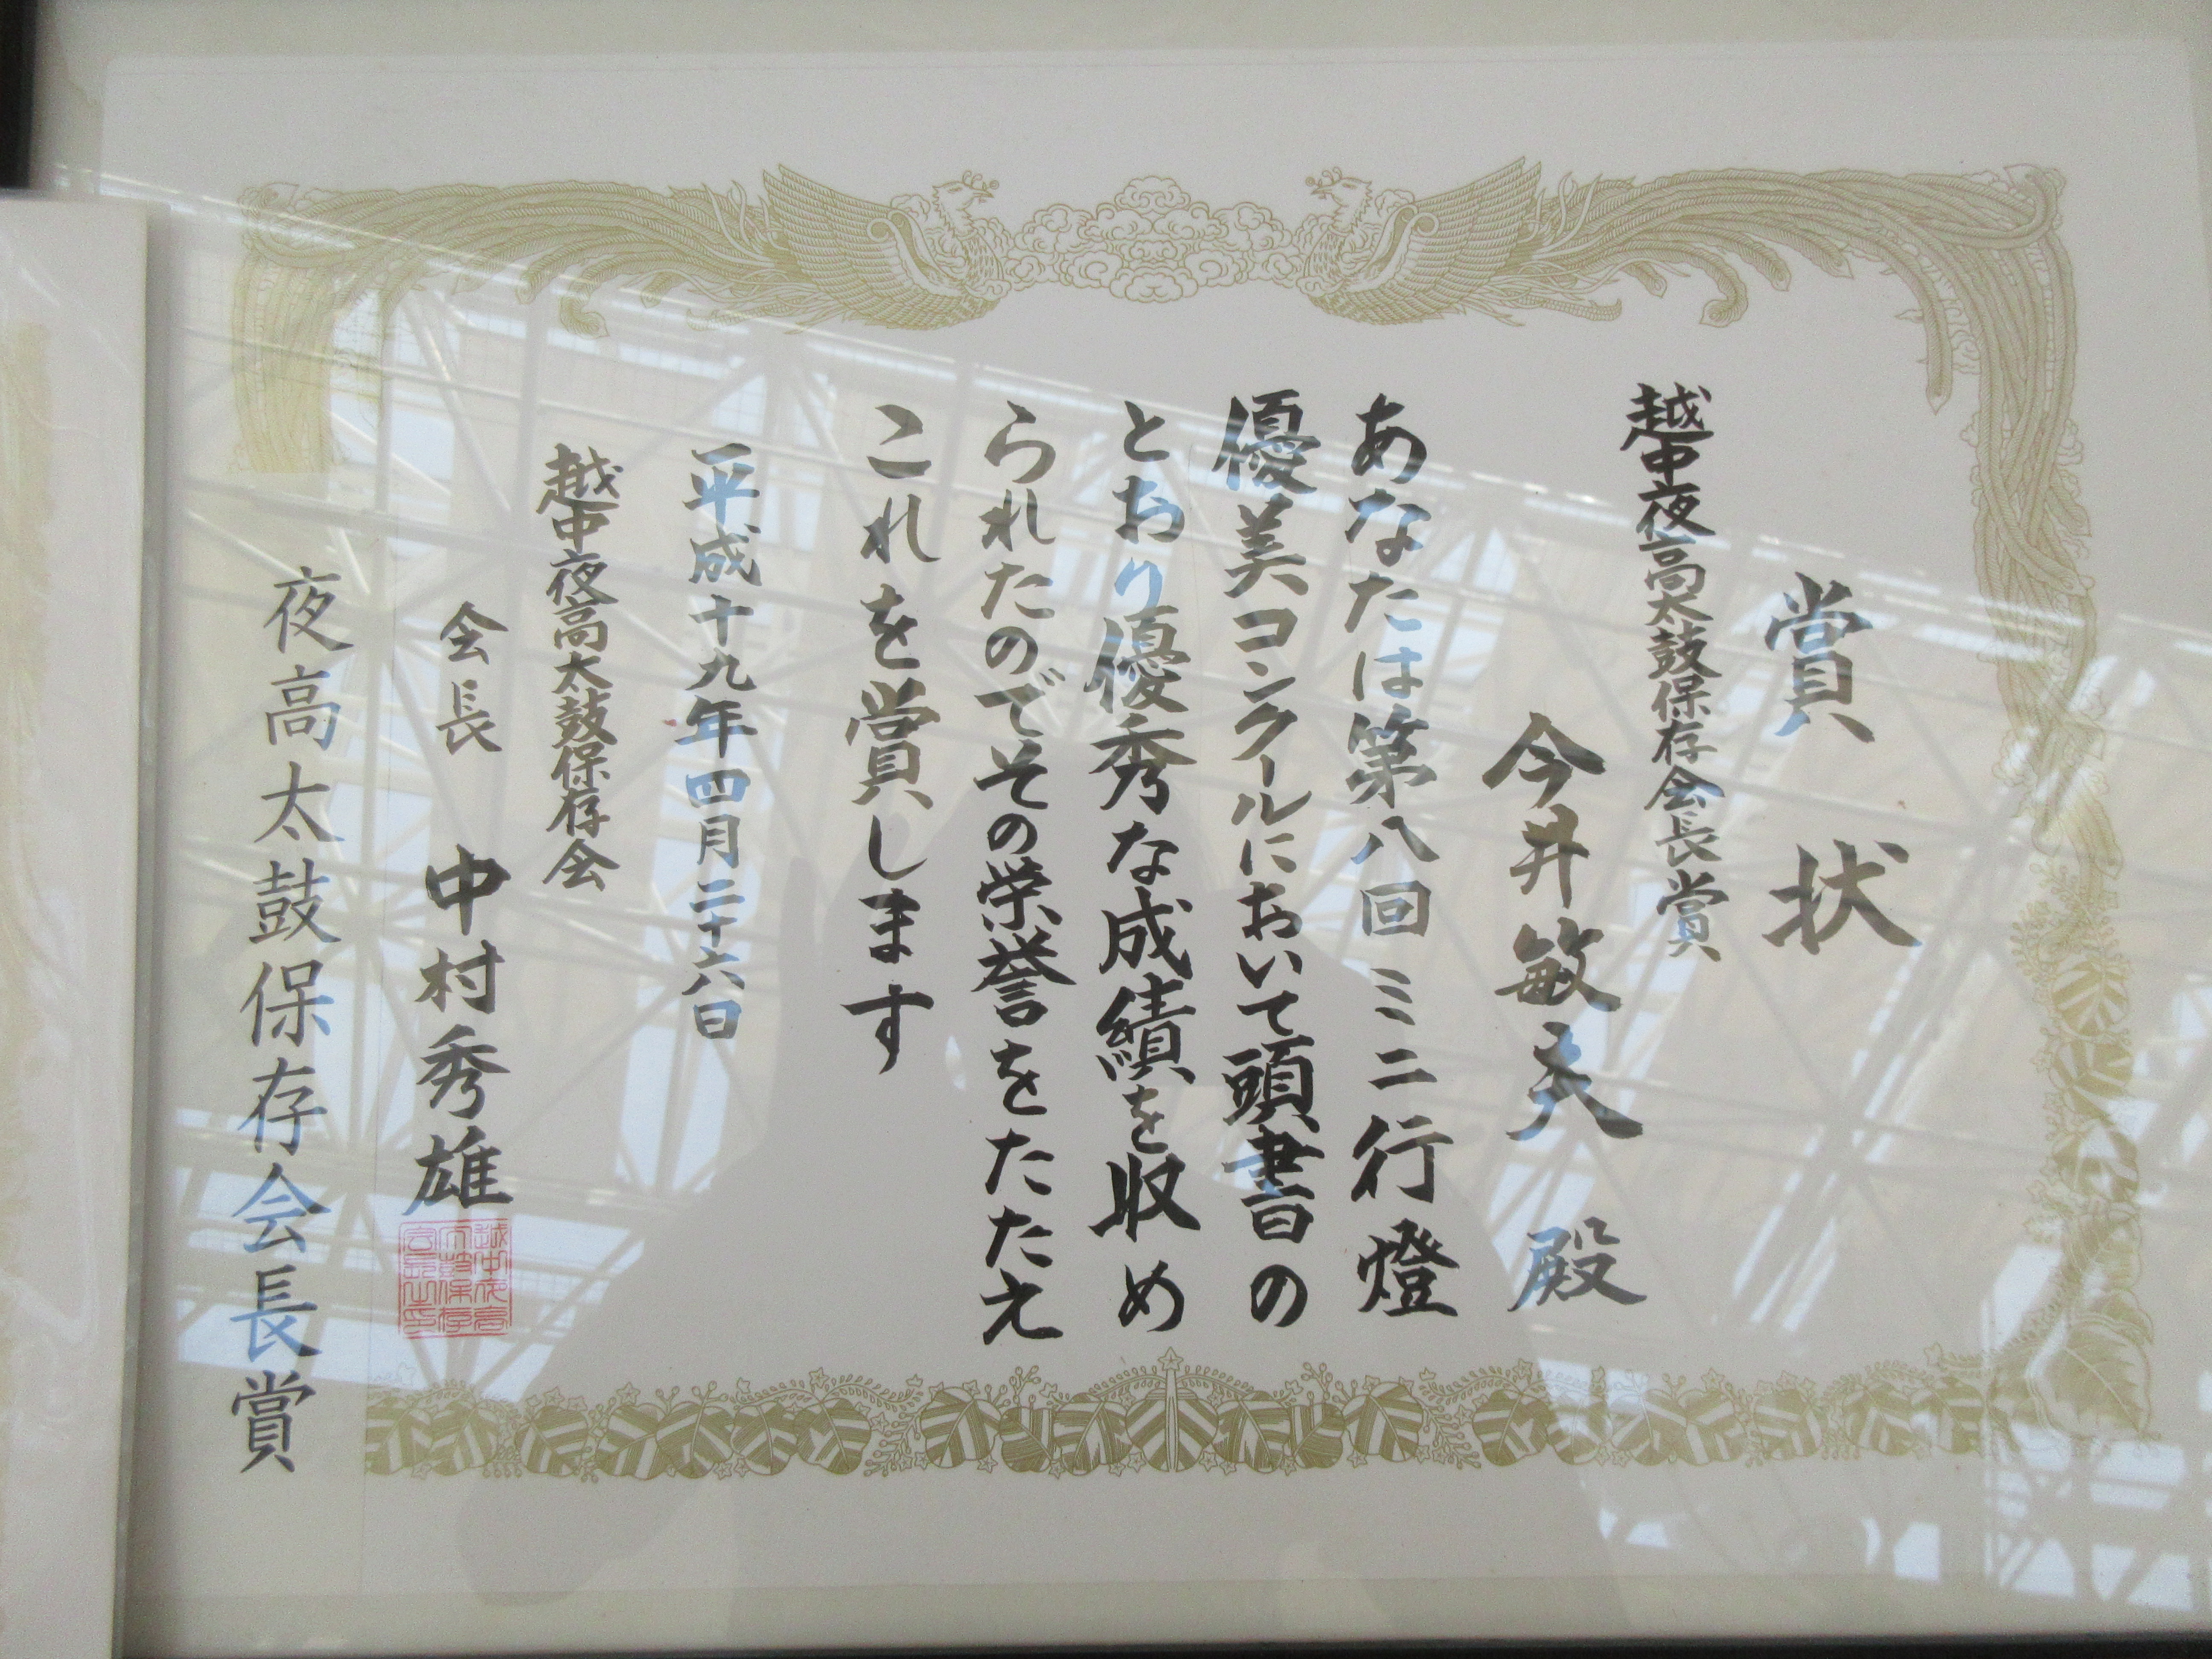 賞状
越中夜高太鼓保存会長賞
今井敏夫 殿
あなたは第八回ミニ行燈
優美コンクールにおいて頭書の
とおり優秀な成績を収め
られたのでその栄誉をたたえ
これを賞します
平成十九年四月二十六日
越中夜高太鼓保存会
会長 中村秀雄
越中夜高太鼓保存会長之印
夜高太鼓保存会長賞